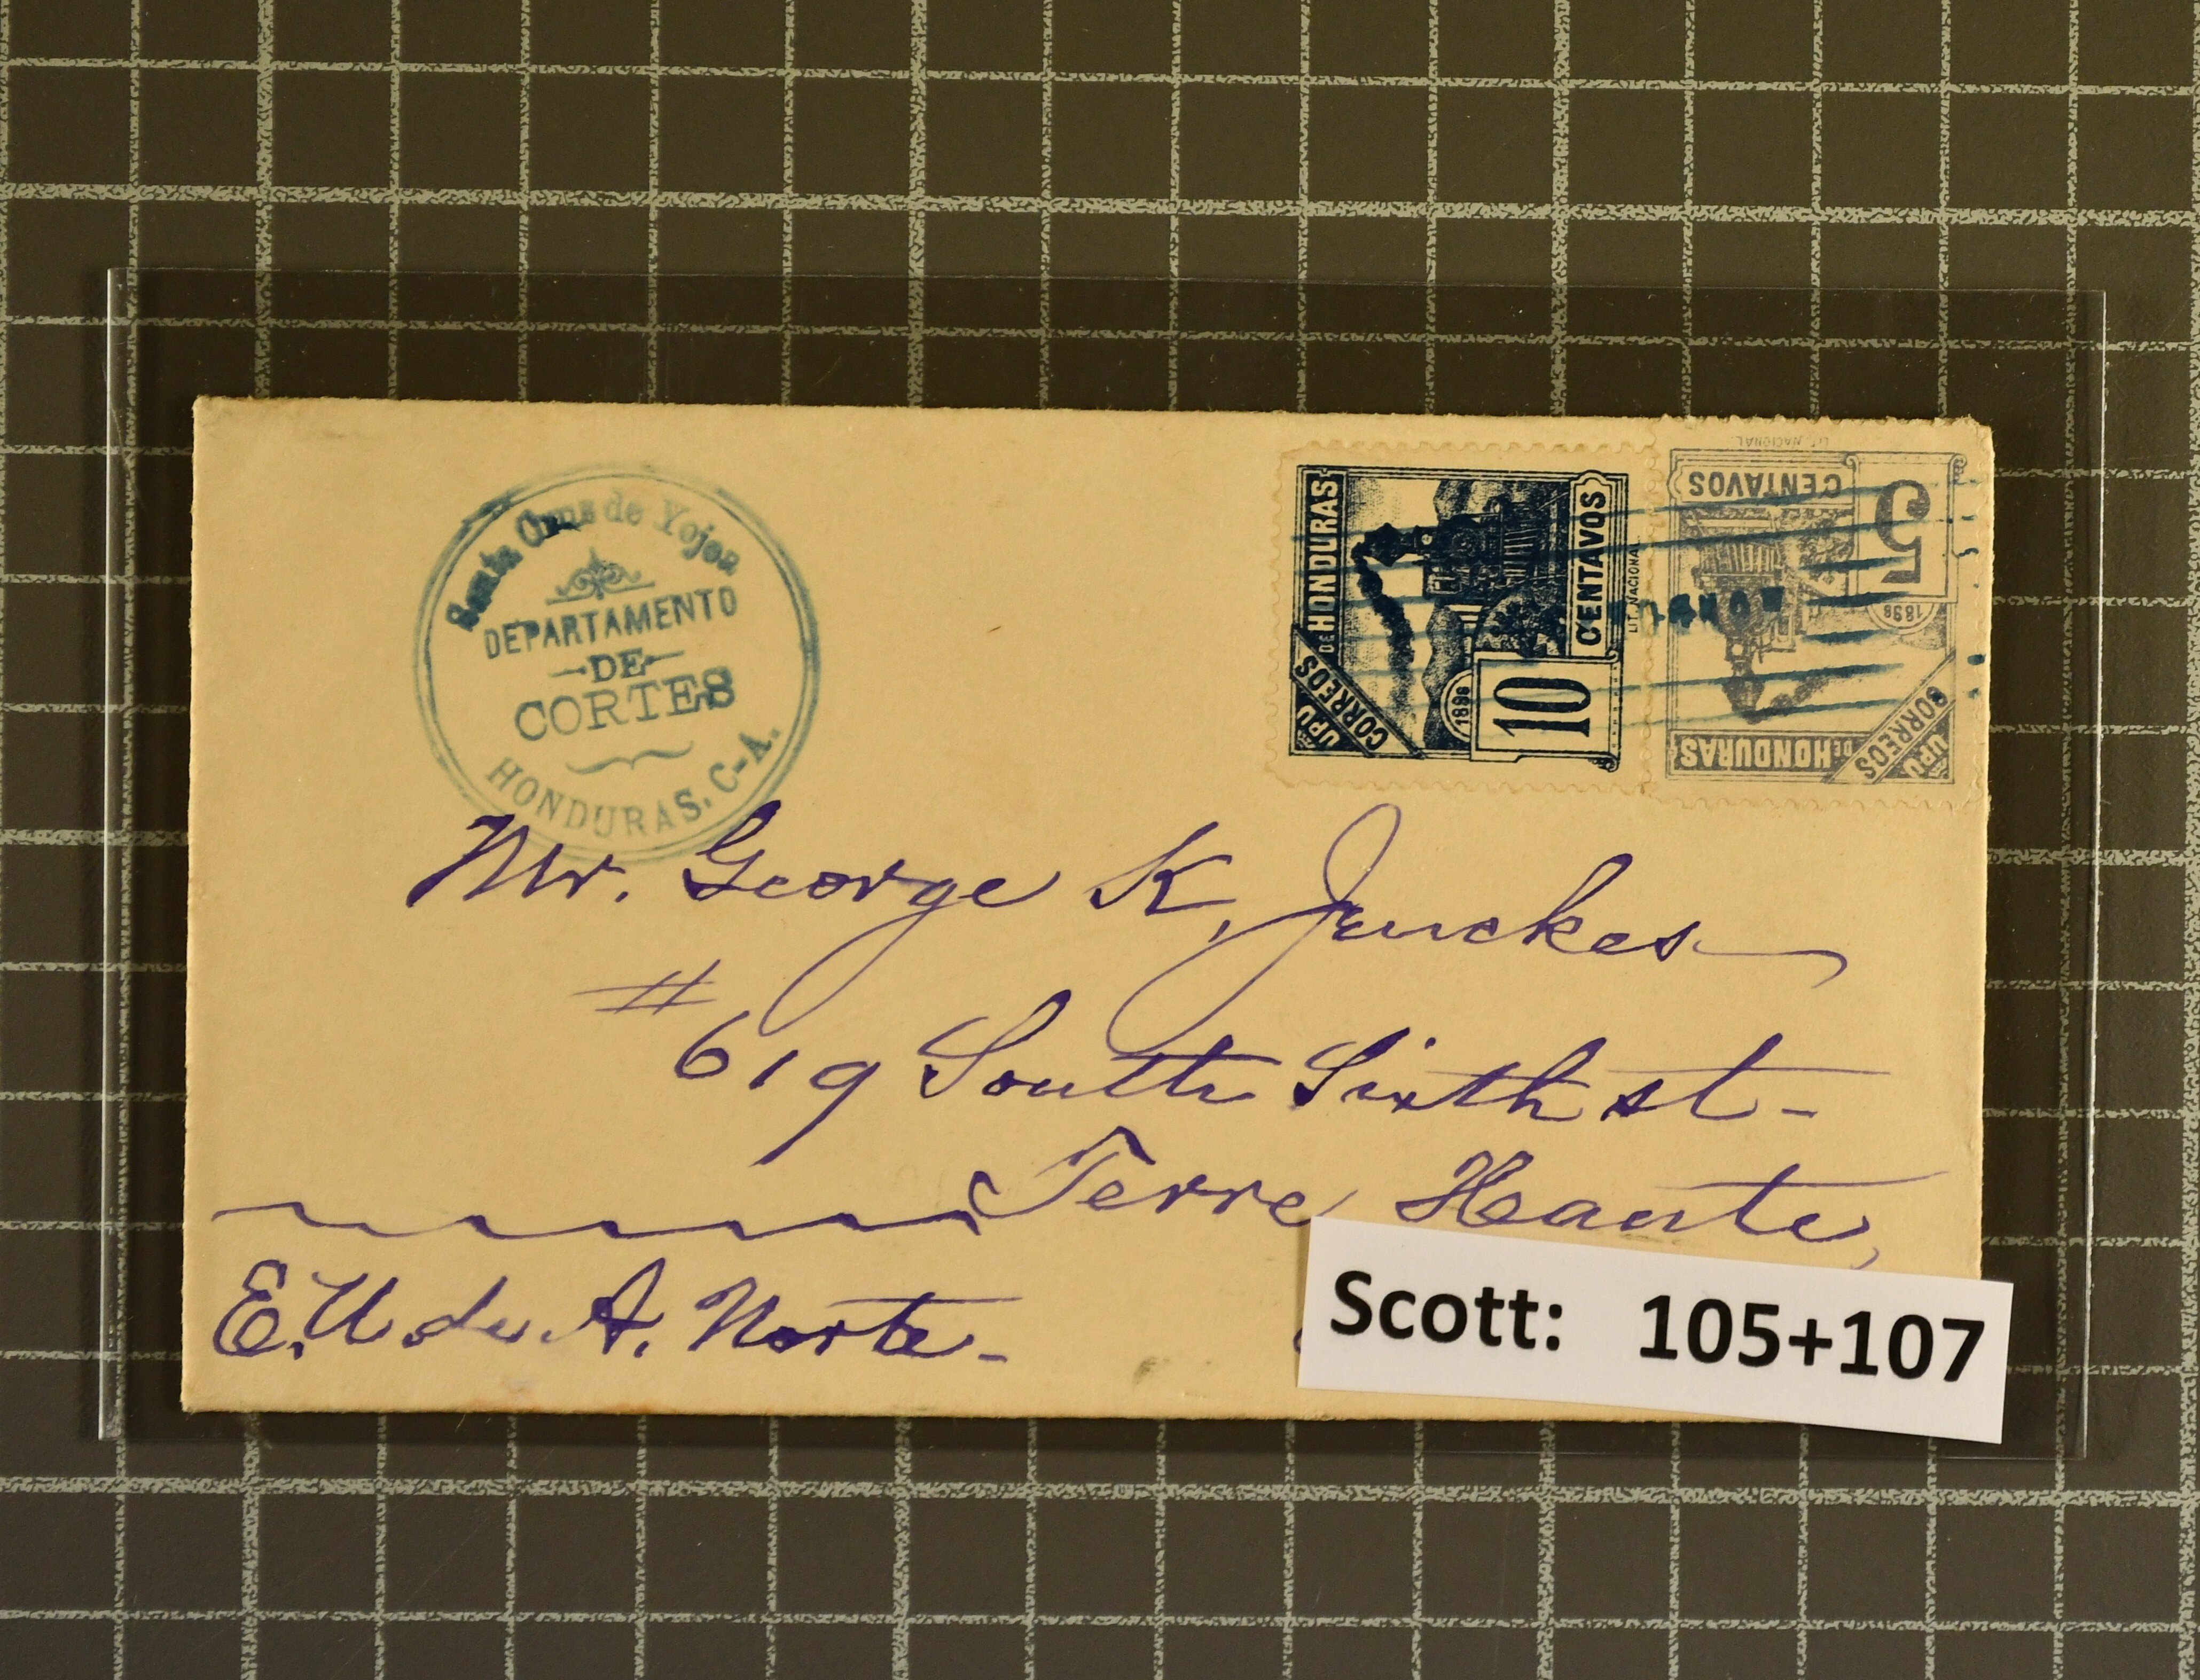 Santa Cruz de Yojoa
DEPARTAMENTO
DE
CORTES
HONDURAS, C-A.
UPU
CORREOS
DE HONDURAS
1898
10
CENTAVOS
LIT. NACIONAL
LIT. NACIONAL
5
CENTAVOS
1898
UPU
CORREOS
DE HONDURAS
Mr. George K, Jenckes
# 619 South Sixth st-
Terre Haute,
E.U de A. Norte-
Scott: 105+107